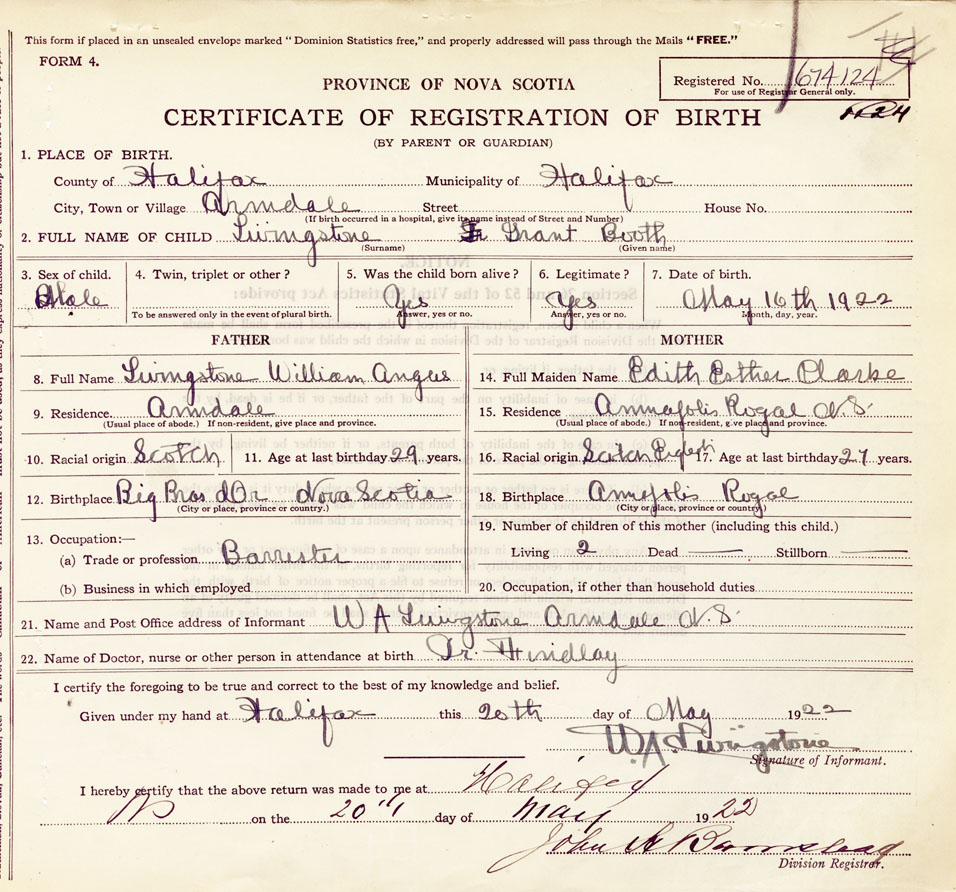 This form if placed in an unsealed envelope marked "Dominion Statistics free," and properly addressed will pass through the Mails "FREE."
FORM 4.
PROVINCE OF NOVA SCOTIA
Registered No. 674124
For use of Registrar General only.
CERTIFICATE OF REGISTRATION OF BIRTH
(BY PARENT OR GUARDIAN)
1. PLACE OF BIRTH.
County of Halifax Municipality of Halifax
City, Town or Village Armdale Street House No.
(If birth occurred in a hospital, give its name instead of Street and Number)
2. FULL NAME OF CHILD Livingstone Grant Booth
(Surname) (Given name)
3. Sex of child. 4. Twin, triplet or other? 5. Was the child born alive? 6. Legitimate? 7. Date of birth.
Male Yes Yes May 16th 1922
To be answered only in the event of plural birth. Answer, yes or no. Answer, yes or no. Month, day, year.
FATHER MOTHER
8. Full Name Livingstone William Angus 14. Full Maiden Name Edith Esther Clarke
9. Residence. Armdale 15. Residence Annapolis Royal N.S.
(Usual place of abode.) If non-resident, give place and province. (Usual place of abode.) If non-resident, give place and province.
10. Racial origin Scotch 11. Age at last birthday 29 years. 16. Racial origin Scotch English 17. Age at last birthday 27 years.
12. Birthplace Big Bras d'Or Nova Scotia 18. Birthplace Annapolis Royal
(City or place, province or country.) (City or place, province or country.)
13. Occupation:— 19. Number of children of this mother (including this child.)
(a) Trade or profession Barrister Living 2 Dead — Stillborn —
(b) Business in which employed 20. Occupation, if other than household duties
21. Name and Post Office address of Informant W A Livingstone Armdale N.S.
22. Name of Doctor, nurse or other person in attendance at birth Dr. Findlay
I certify the foregoing to be true and correct to the best of my knowledge and belief.
Given under my hand at Halifax this 20th day of May 1922
W.A. Livingstone
Signature of Informant.
I hereby certify that the above return was made to me at Halifax
NS on the 20th day of May 1922
John A
Division Registrar.